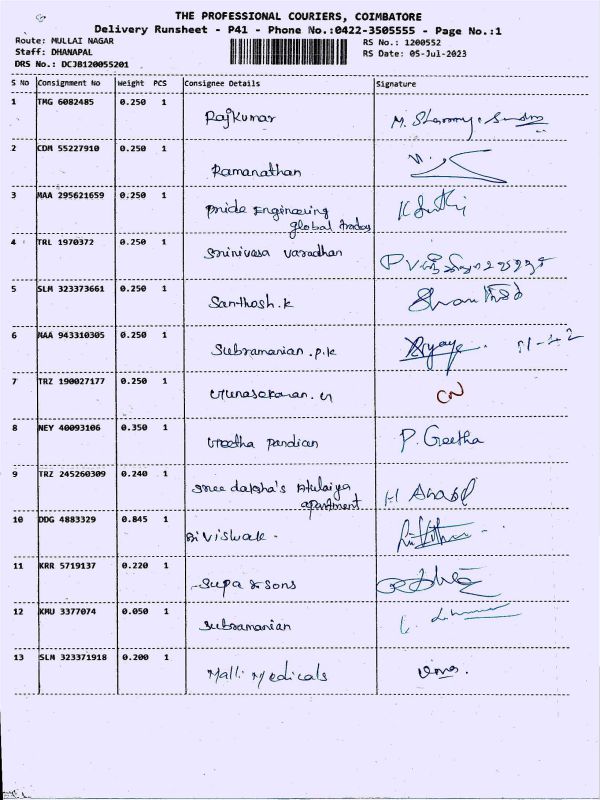 THE PROFESSIONAL COURIERS, COIMBATORE
Delivery Runsheet - P41 - Phone No.:0422-3505555 - Page No.:1
Route: MULLAI NAGAR RS No.: 1200552
Staff: DHANAPAL RS Date: 05-Jul-2023
DRS No.: DCJB120055201
S No Consignment No Weight PCS Consignee Details Signature
1 TMG 6082485 0.250 1
Rajkumar
2 CDM 55227910 0.250 1
Ramanathan
3 MAA 295621659 0.250 1
pride Engineering
global
4 TRL 1970372 0.250 1
Srinivasa varadhan
5 SLM 323373661 0.250 1
Santhosh.k
6 MAA 943310305 0.250 1
Subramanian.p.k
7 TRZ 190027177 0.250 1
CN
8 NEY 40093106 0.350 1
pandian P. Geetha
9 TRZ 245260309 0.240 1
Sree daksha's
apartment
10 DDG 4883329 0.845 1
11 KRR 5719137 0.220 1
Supa & sons
12 KMU 3377074 0.050 1
Subramanian
13 SLM 323371918 0.200 1
Malli Medicals